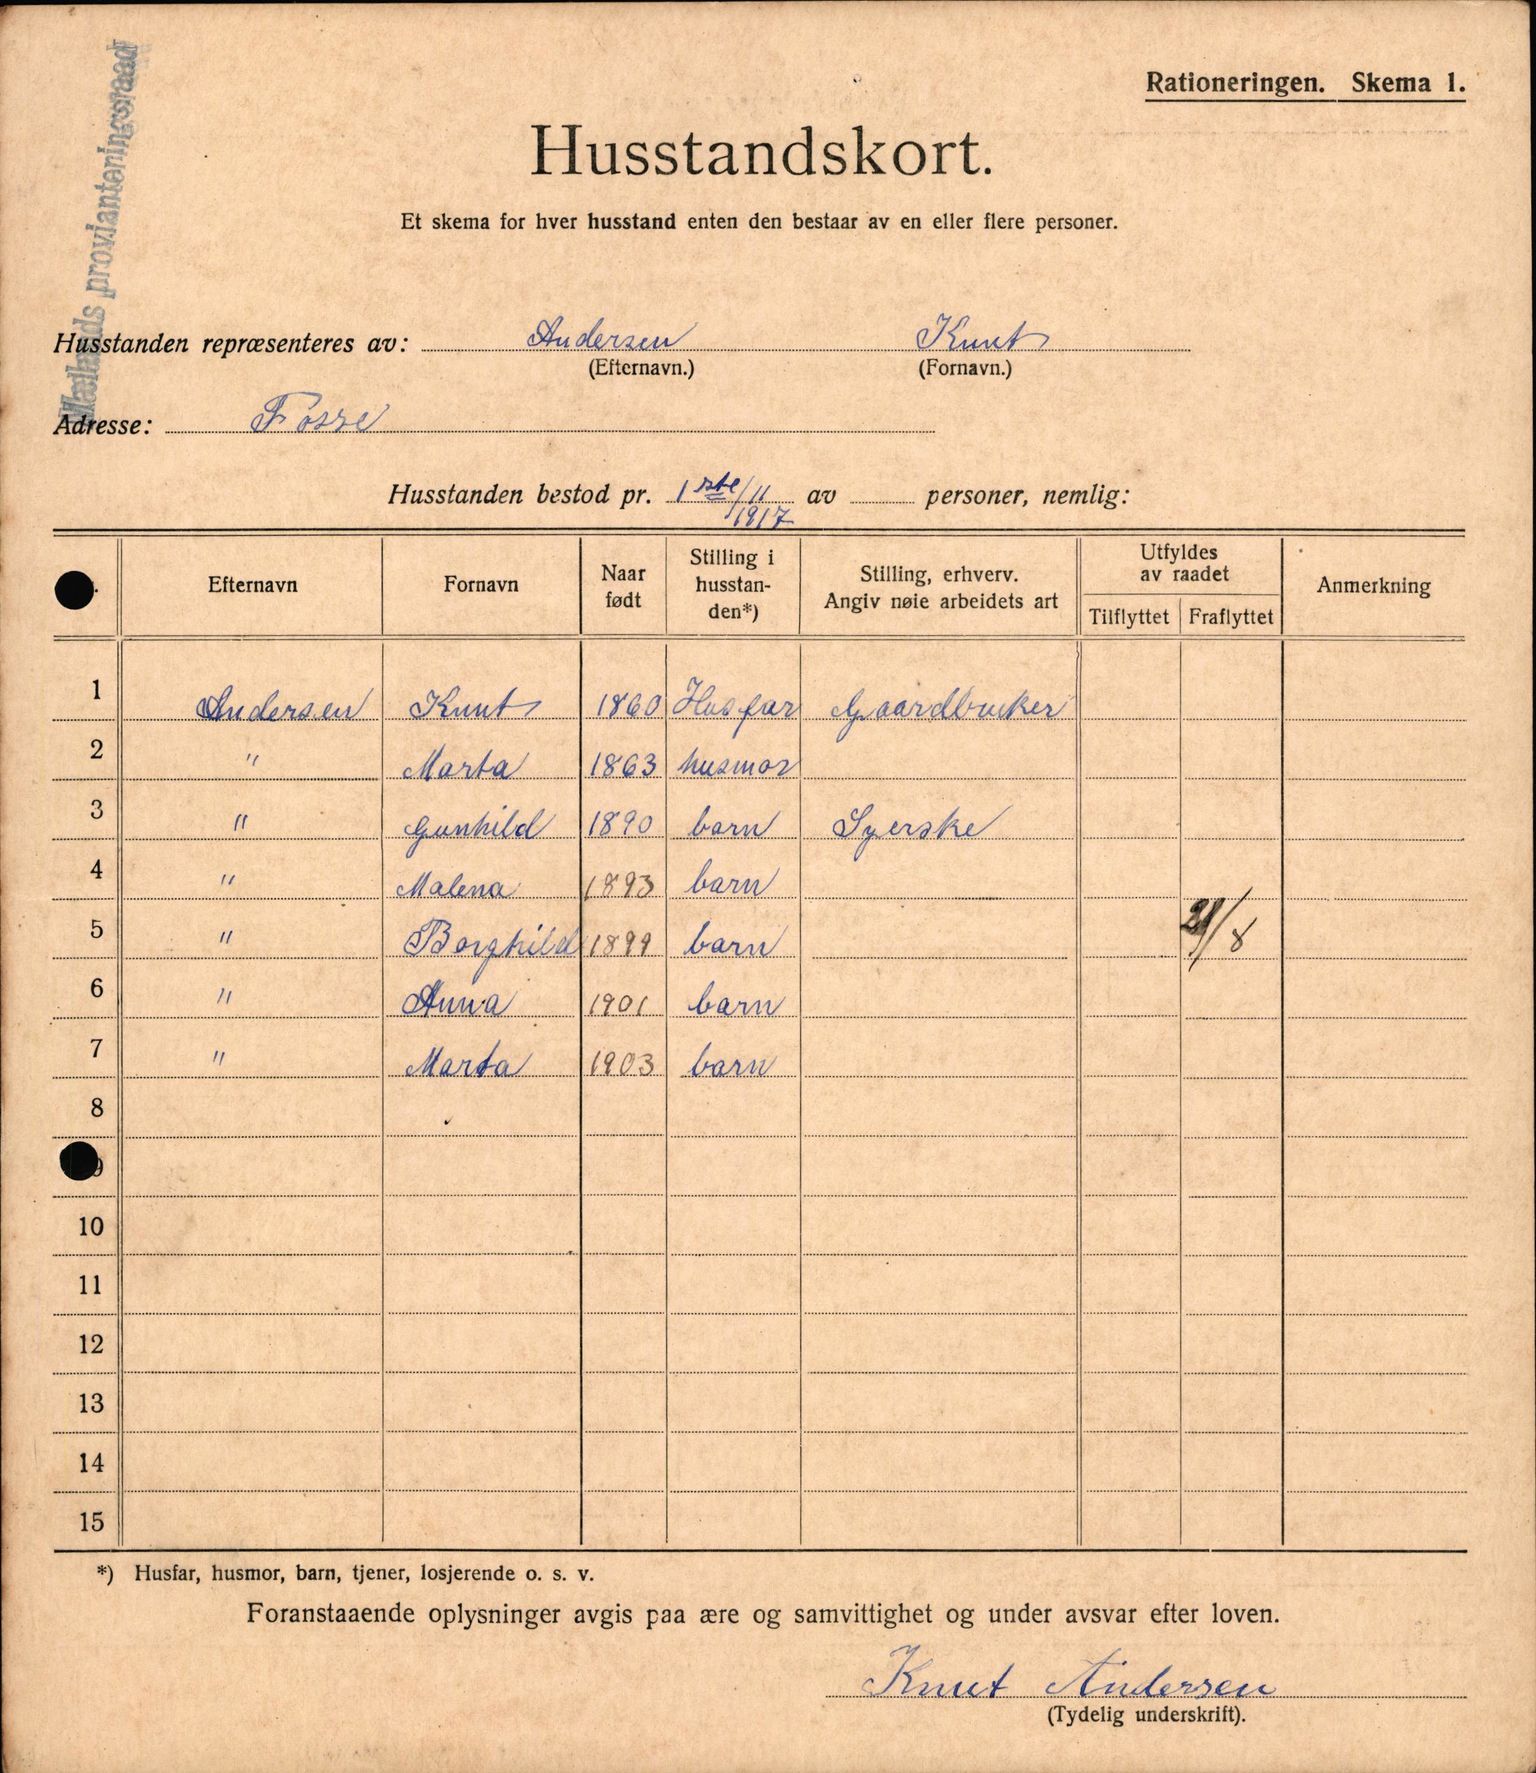 Mælands provianteringsraad
Rationeringen. Skema 1.
Husstandskort.
Et skema for hver husstand enten den bestaar av en eller flere personer.
Husstanden repræsenteres av: Andersen Knut
(Efternavn.) (Fornavn.)
Adresse: Fosse
Husstanden bestod pr. 1ste/11 1917 av personer, nemlig:
Efternavn Fornavn Naar født Stilling i husstanden*) Stilling, erhverv. Angiv nøie arbeidets art Utfyldes av raadet Tilflyttet Fraflyttet Anmerkning
1 Andersen Knut 1860 Husfar Gaardbruker
2 " Marta 1863 husmor
3 " Gunhild 1890 barn Syerske
4 " Malena 1893 barn
5 " Borghild 1899 barn /8
6 " Anna 1901 barn
7 " Marta 1903 barn
8
9
10
11
12
13
14
15
*) Husfar, husmor, barn, tjener, losjerende o. s. v.
Foranstaaende oplysninger avgis paa ære og samvittighet og under avsvar efter loven.
Knut Andersen
(Tydelig underskrift).